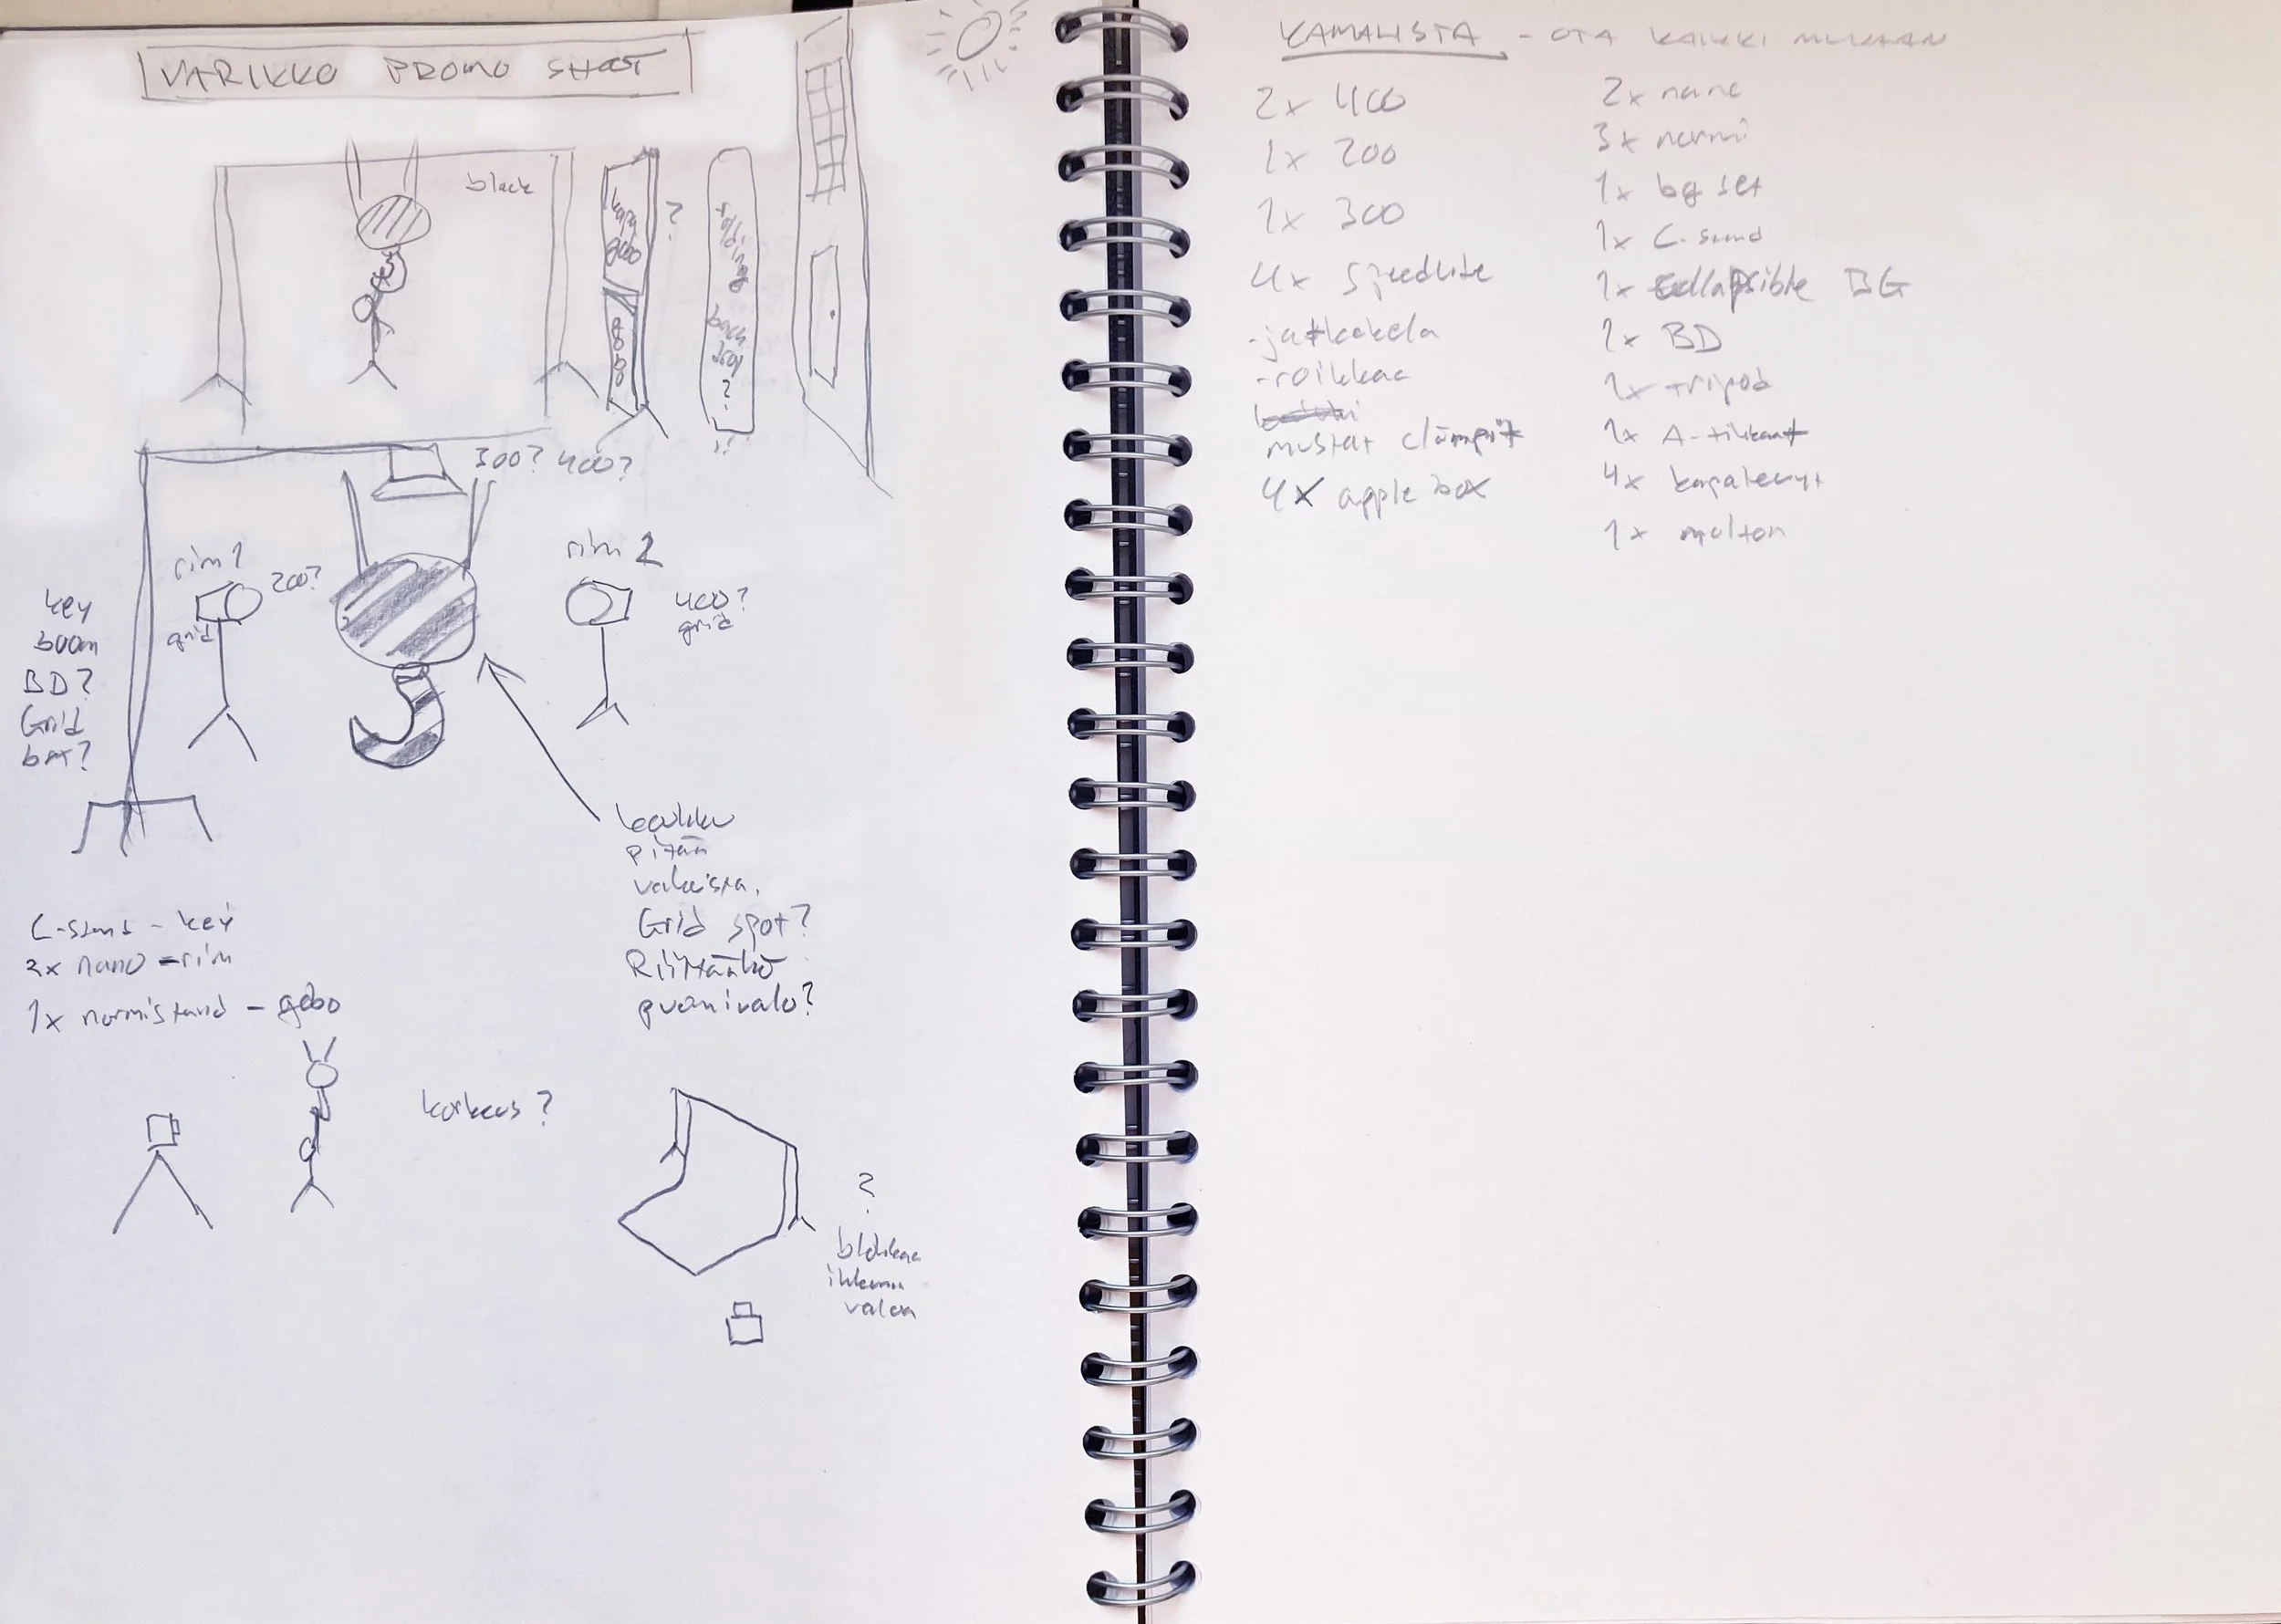 VARIKKO PROMO SHOT
black
kapa
gobo
?
collapsible
back
ground
?
300? 400?
rim 1
200?
grid
rim 2
400?
grid
key
boom
BD?
Grid
bat?
koukku
pitää
valaista.
Grid spot?
Riittääkö
puomivalo?
C-stand - key
2x nano - rim
1x normistand - gobo
korkeus?
?
blokkaa
ikkunan
valoa
KAMALISTA - OTA KAIKKI MUKAAN
2x 400
1x 200
1x 300
4x speedlite
- jatkokela
- roikkaa
mustat clämpit
4x apple box
2x nano
3x normi
1x bg set
1x C-stand
1x collapsible BG
1x BD
1x tripod
1x A-tikkaat
4x kapalevyt
1x molton